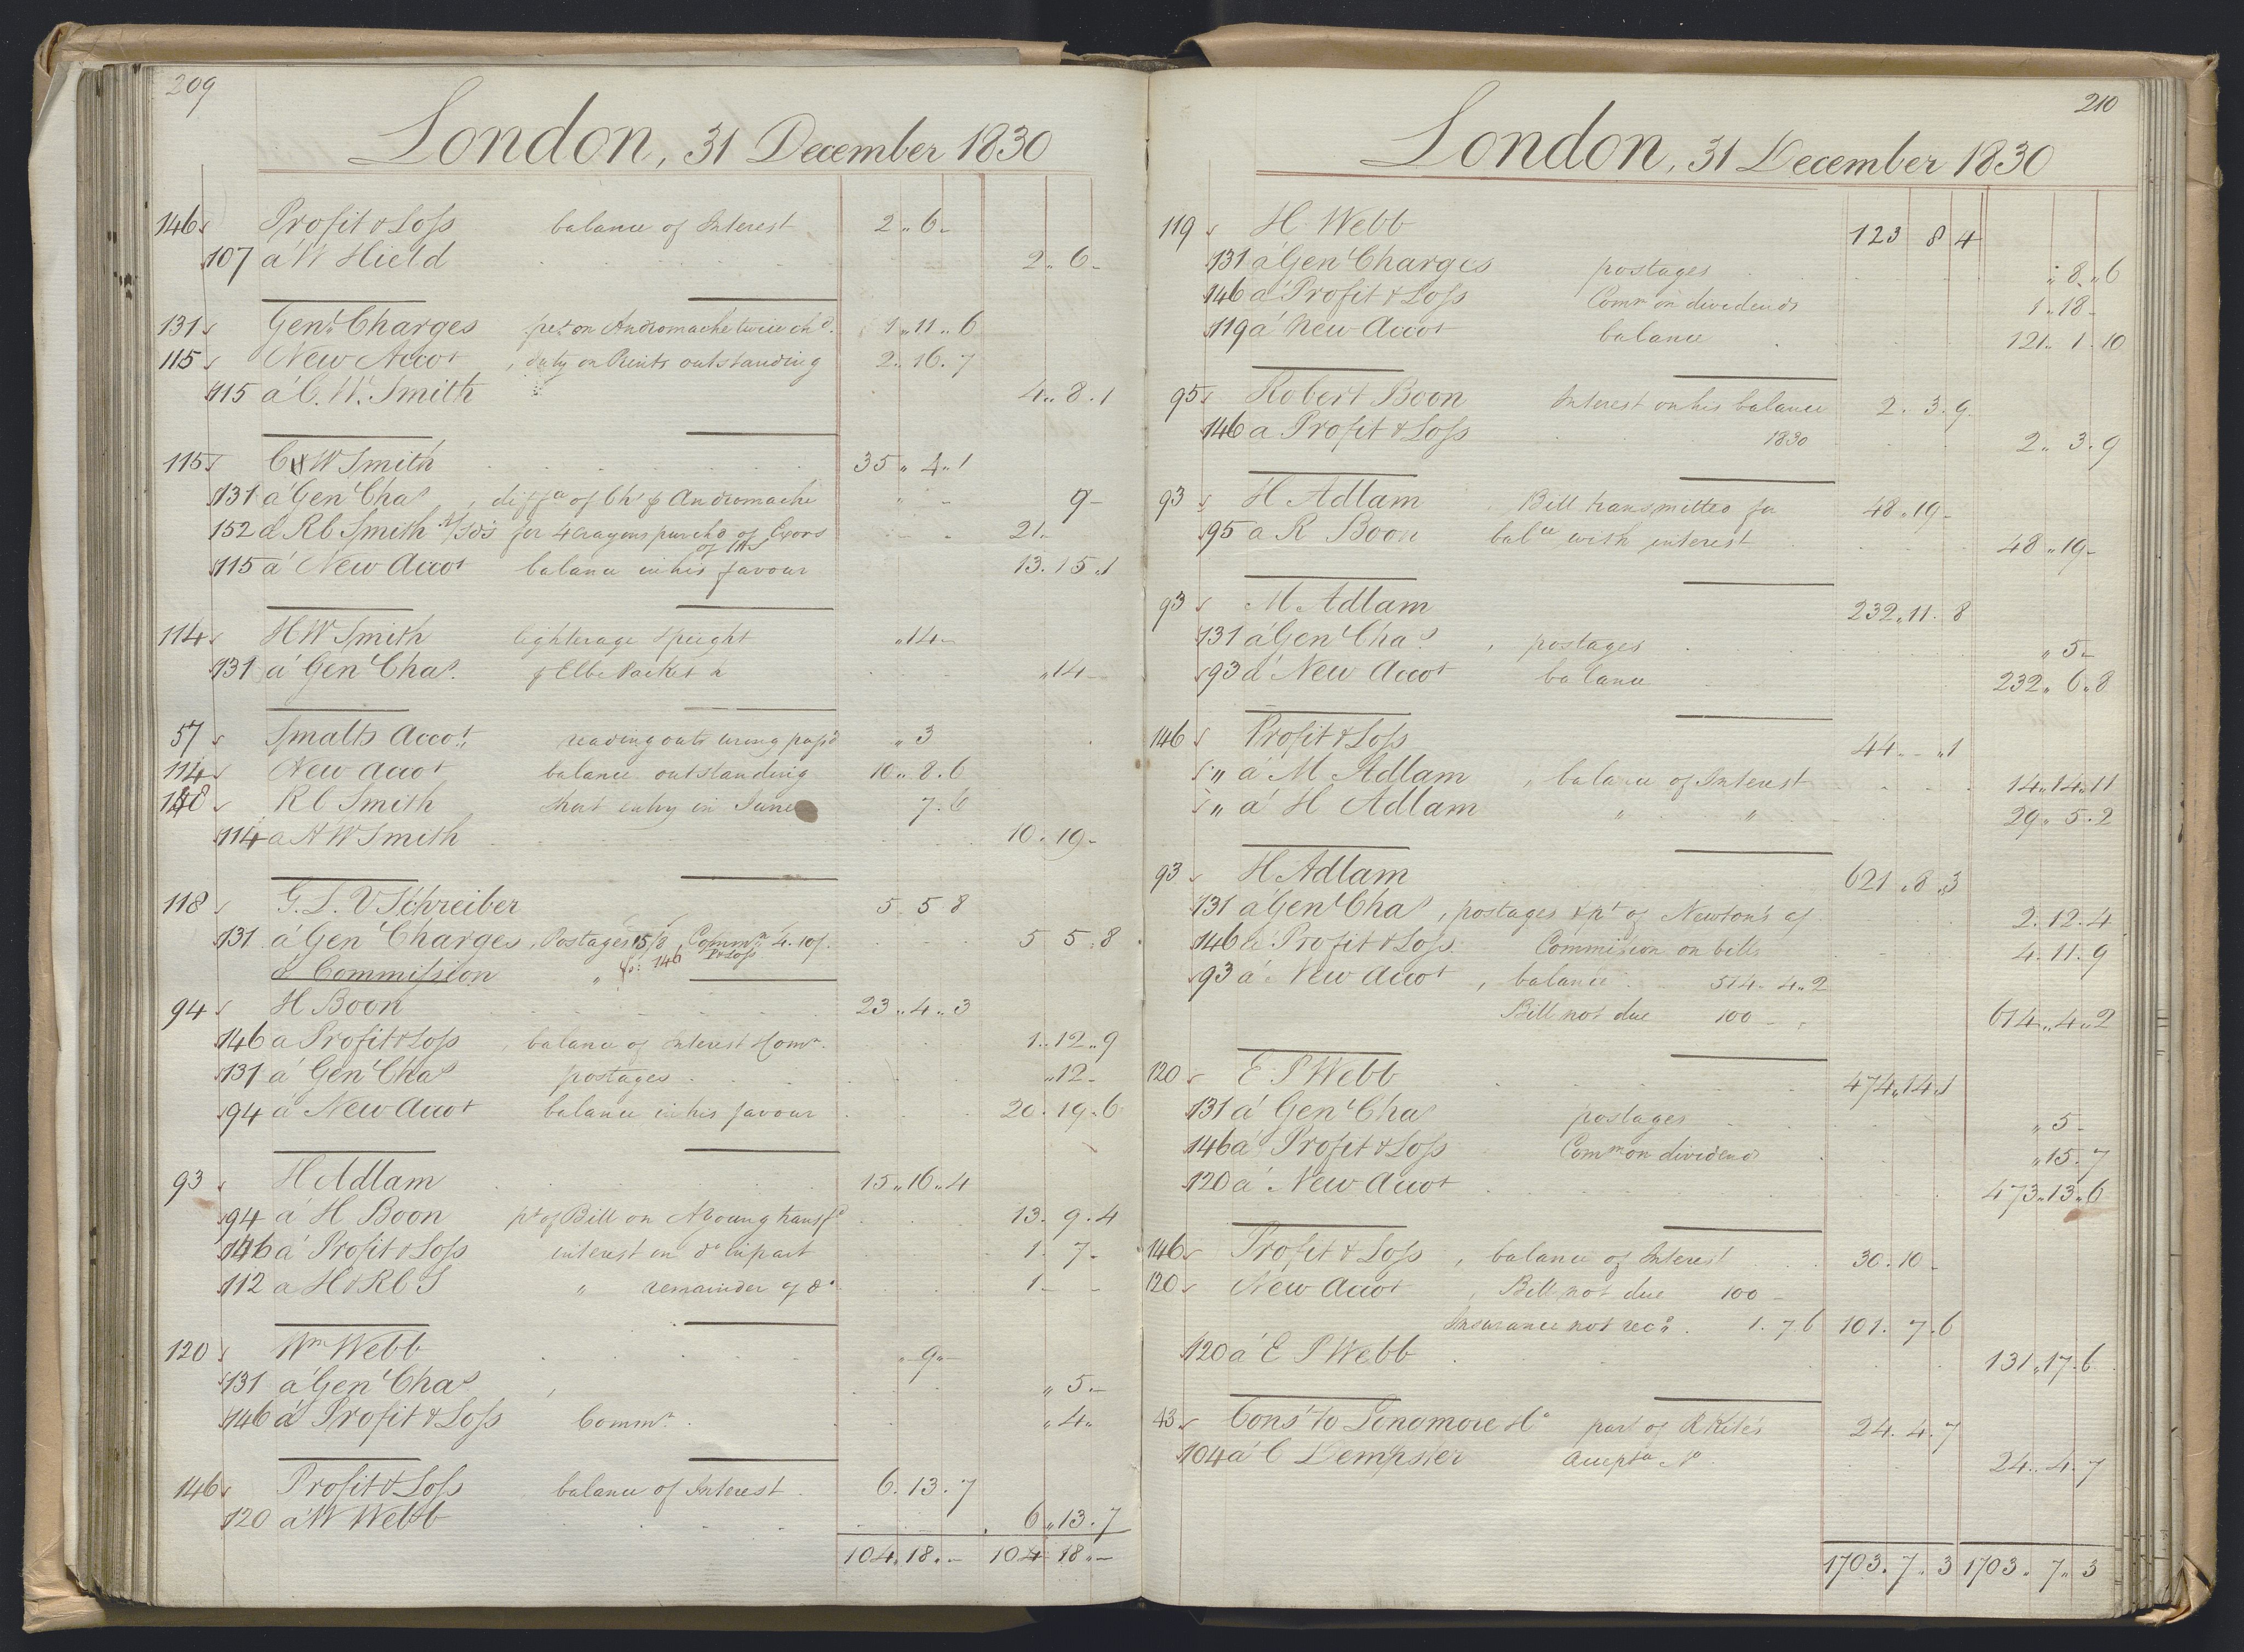 209
London, 31 December 1830
146 Profit & Loss balance of Interest 2 „ 6 -
107 á W Hield 2 „ 6 -
131 Genl Charges on Andromache twice chd. 1 „ 11 „ 6
115 New Accot, duty on Prints outstanding 2 „ 16 . 7
115 á C. H. Smith 4 „ 8 . 1
115 C H W Smith 35 „ 4 „ 1
131 á Genl Chas, diffce of Chs p Andromache 9 -
152 á RC Smith for 4 crayons purchd of Exors 21 -
of HS
115 á New Accot balance in his favour 13 . 15 . 1
114 H W Smith lighterage & freight „ 14 -
131 á Genl Chas. p Elbe Packet „ 14 -
57 Smalts Accot. wrong passd „ 3
114 New Accot balance outstanding 10 „ 8 . 6
RC Smith short entry in June 7 . 6
114 a H W Smith 10 . 19 -
118 G. L. V Schreiber 5 5 8
131 á Genl Charges, Postages 15/8, Commn 4 . 10/. 5 5 . 8
146 P & Loss
á Commission „
94 H Boon 23 „ 4 „ 3
146 a Profit & Loss, balance of Interest & Comn. 1 „ 12 „ 9
131 á Genl Chas postages „ 12 -
94 á New Accot balance in his favour 20 . 19 . 6
93 H Adlam 15 „ 16 „ 4
94 á H Boon pt of Bill on A Young transfd 13 . 9 . 4
146 á Profit & Loss interest on do in part 1 . 7 -
112 a H & RC S „ remainder of do 1 - -
120 Wm Webb „ 9 „ -
131 á Genl Chas „ 5 -
146 á Profit & Loss Commn. „ 4 „
146 Profit & Loss balance of Interest . 6 . 13 . 7
120 á W Webb 6 „ 13 . 7
104 . 18 . - 104 18 „ -
210
London, 31 December 1830
119 H Webb 123 8 4
131 á Genl Charges postages „ 8 „ 6
146 á Profit & Loss Commn on dividends 1 . 18 -
119 á New Accot balance 121 . 1 . 10
95 Robert Boon Interest on his balance 2 . 3 . 9
146 a Profit & Loss 1830 2 „ 3 . 9
93 H Adlam, Bill transmitted for 48 „ 19 -
95 a R Boon balce with interest 48 „ 19 -
93 M Adlam 232 „ 11 . 8
131 á Genl Chas., postages „ 5 -
93 á New Accot balance 232 „ 6 „ 8
146 Profit & Loss 44 „ - „ 1
„ á M Adlam „ balance of Interest 14 „ 14 „ 11
„ á H Adlam „ „ 29 „ 5 . 2
93 H Adlam 621 „ 8 „ 3
131 á Genl Chas, postages & pt of Newton's 2 . 12 . 4
146 á Profit & Loss Commission on bills 4 . 11 . 9
93 á New Accot, balance 514 . 4 „ 2
Bill not due 100 - 614 „ 4 „ 2
120 E P Webb 474 „ 14 „ 1
131 á Genl Chas postages „ 5 -
146 á Profit & Loss Commn on dividend „ 15 . 7
120 á New Accot 473 „ 13 „ 6
146 Profit & Loss, balance of Interest 30 . 10 -
120 New Accot, Bill not due 100 -
Insurance not recd . 1 . 7 . 6 101 . 7 . 6
120 á E P Webb 131 „ 17 . 6
43 Const to Longmore & Co part of R Kite's 24 . 4 . 7
104 á C Dempster Accepta 24 . 4 . 7
1703 . 7 . 3 1703 . 7 „ 3